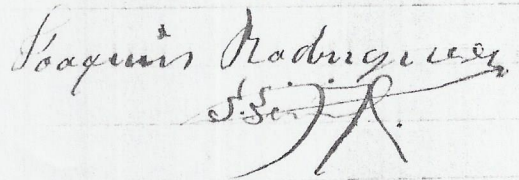 Joaquin Rodriguez